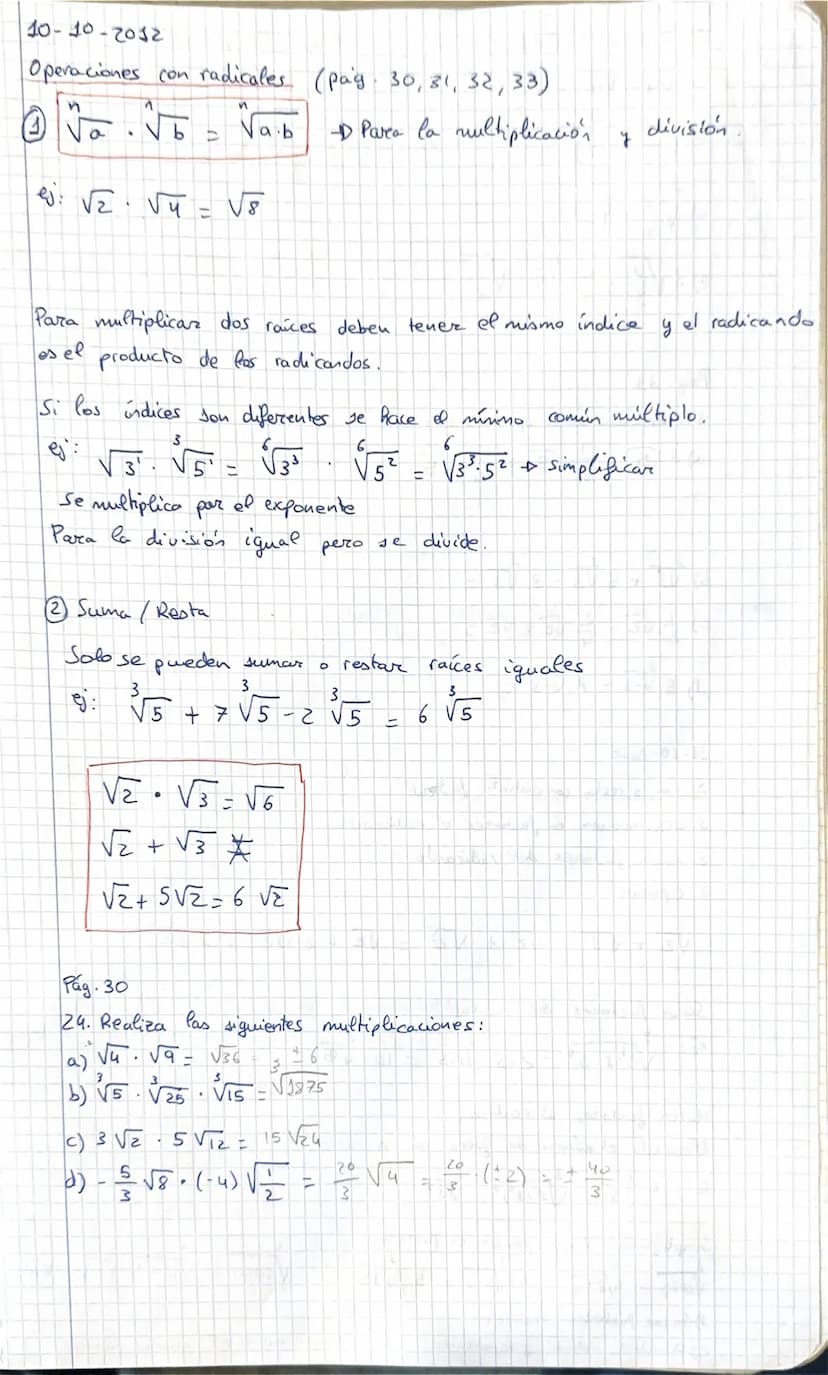 10-10-2012
Operaciones con radicales (pág. 30, 31, 32, 33)
① ⁿ√a · ⁿ√b = ⁿ√a·b → Para la multiplicación y división.
ej: √2 · √4 = √8
Para multiplicar dos raíces deben tener el mismo índice y el radicando
es el producto de los radicandos.
Si los índices son diferentes se hace el mínimo común múltiplo.
ej: √3¹ · ³√5¹ = ⁶√3³ · ⁶√5² = ⁶√3³·5² → simplificar
Se multiplica por el exponente
Para la división igual pero se divide.
② Suma / Resta
Solo se pueden sumar o restar raíces iguales
ej: ³√5 + 7 ³√5 - 2 ³√5 = 6 ³√5
√2 · √3 = √6
√2 + √3
√2 + 5√2 = 6 √2
Pág. 30
24. Realiza las siguientes multiplicaciones:
a) √4 · √9 = √36 = ± 6
b) ³√5 · ³√25 · ³√15 = ³√1875
c) 3 √2 · 5 √12 = 15 √24
d) - 5/3 √8 · (-4) √1/2 = 20/3 √4 = 20/3 · (±2) = ± 40/3